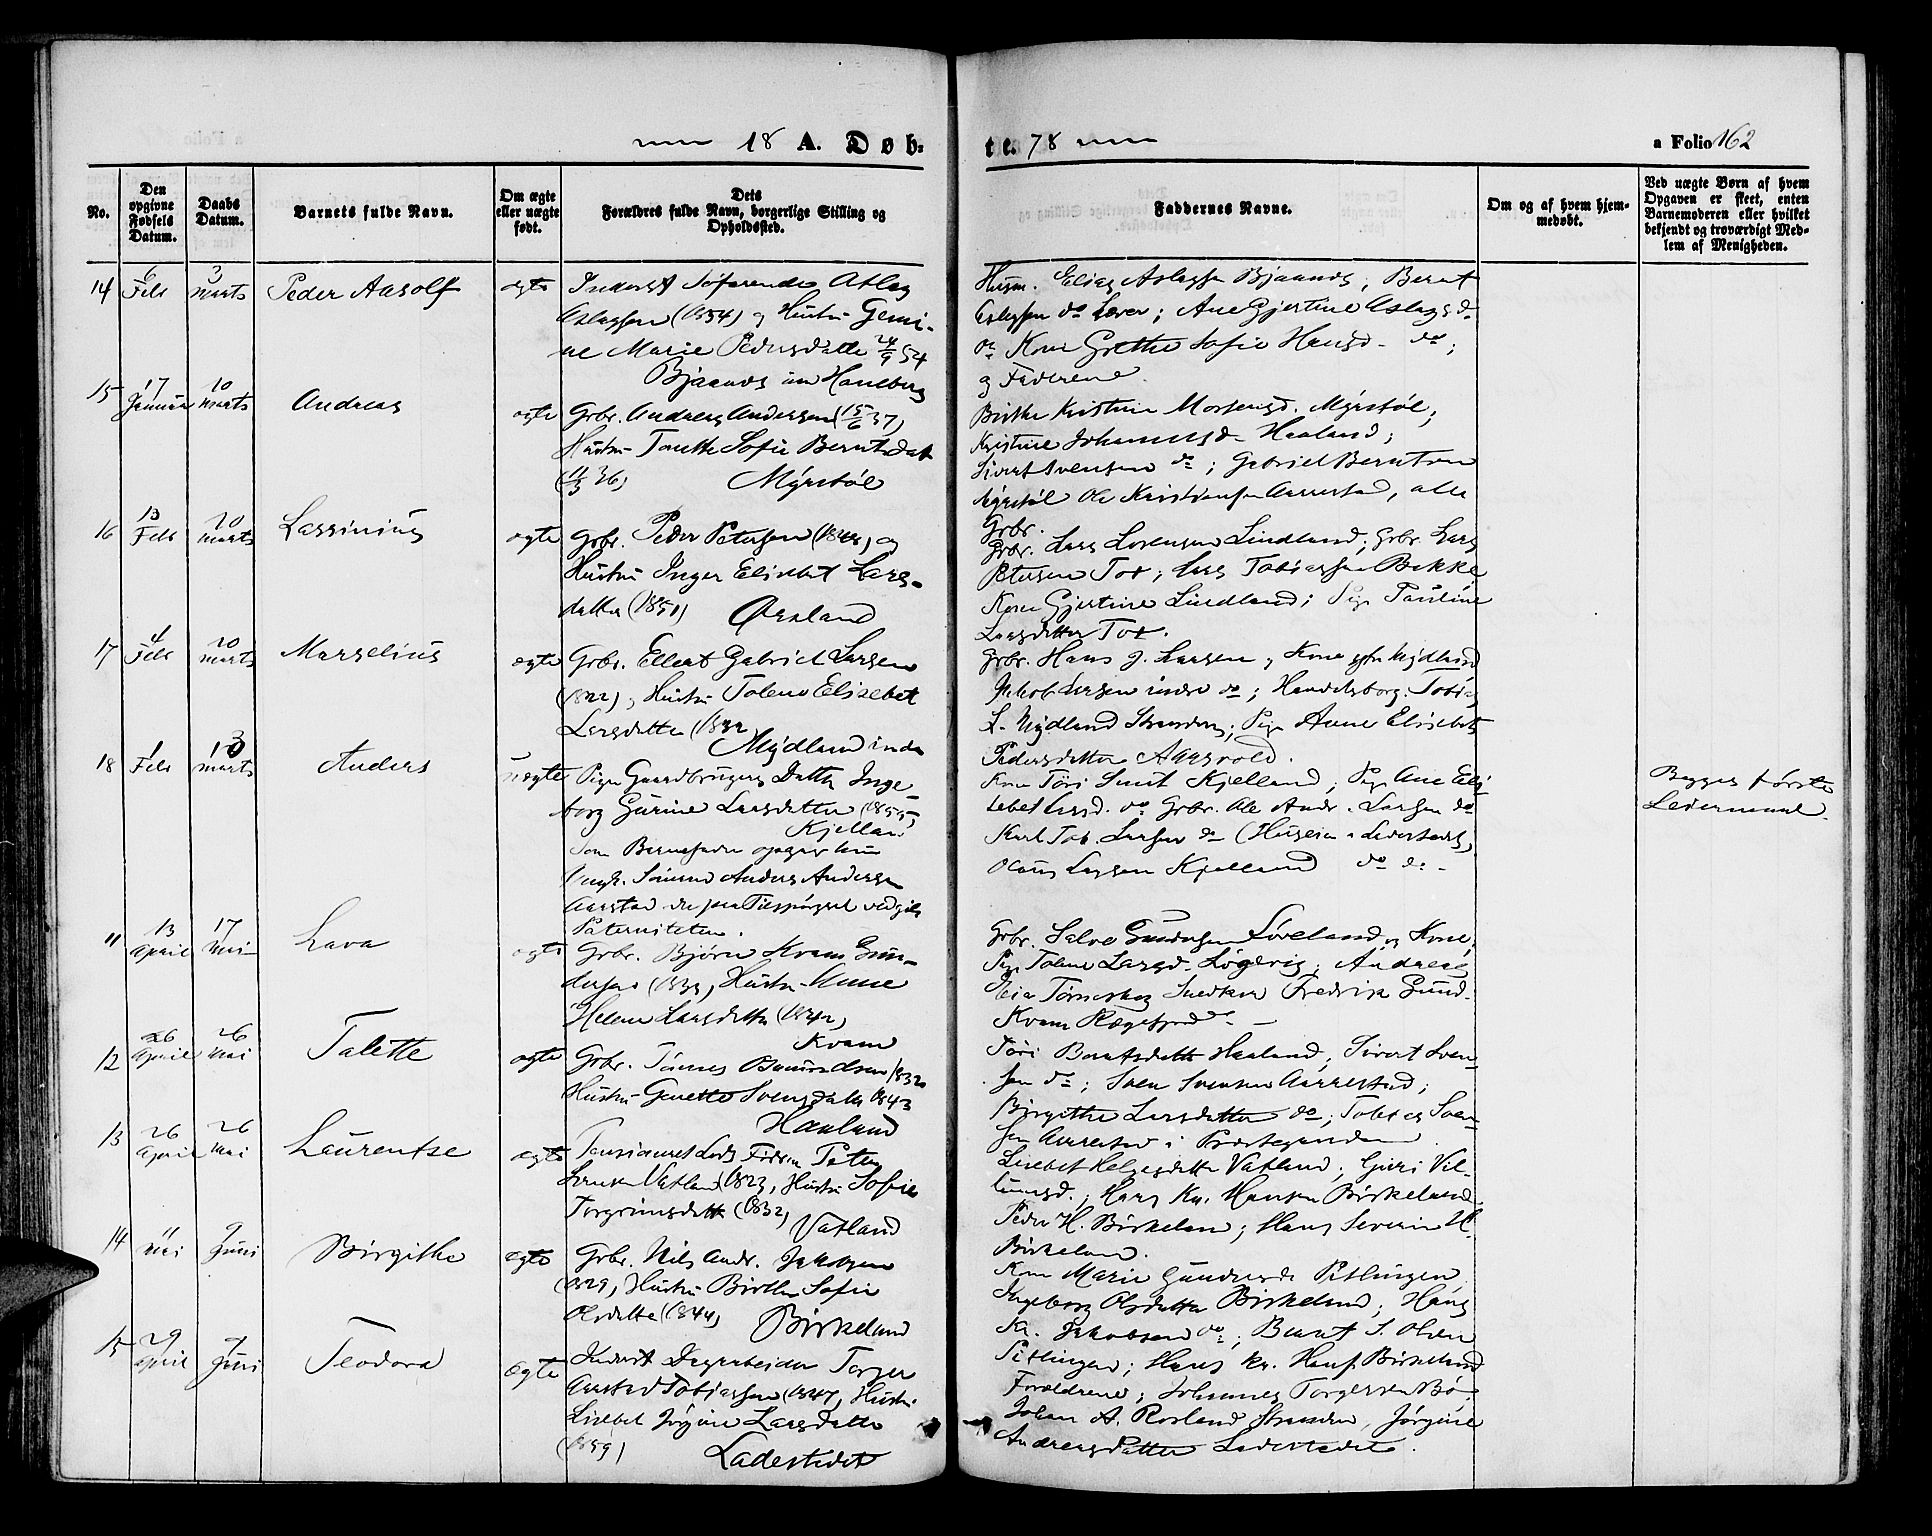 18 A. Døb-
te. 78
a Folio 162
No.
Den opgivne Fødsels Datum.
Daabs Datum.
Barnets fulde Navn.
Om ægte eller uægte født.
Dets Forældres fulde Navn, borgerlige Stilling og Opholdssted.
Faddernes Navne.
Om og af hvem hjemmedøbt.
Ved uægte Børn af hvem Opgaven er skeet, enten Barnemoderen eller hvilket bekjendt og troværdigt Medlem af Menigheden.
14 6 Feb 3 marts Peder Aasolf ægte
Inderst Søfarende Atlag
Aslagsen (1854) og Hustru Gemi-
ne Marie Pedersdatte 24/9 54
Bjaanes
Husm. Elias Aslagsen Bjaanes; Bernt
Aslagsen do Lærer; Ane Gjertine Aslagsd
do Kone Grethe Sofie Hansd. do;
og Faderene.
15 17 Januar 10 marts Andreas ægte
Grbr. Andreas Andersen (15/6 37)
Hustru Tonette Sofie Berntsdat
36) Myrstøl
Birthe Kristine Mortensd. Myrstøl,
Kristine Johannesd. Haaland;
Sivert Svensen do; Gabriel Berntsen
Myrstøl Ole Kristiansen Aarrestad, alle
Grbr.
16 13 Feb 20 marts Lassinius ægte
Grbr. Peder Petersen (1848) og
Hustru Inger Elisebet Lars-
datter (1851)
Grbr. Lars Lorensen Lindland; Grbr. Lars
Petersen Tox; Lars Tobiassen Bakke
Kone Gjertine Lindland; Pige Pauline
Larsdatter Tox.
17 4 Feb 20 marts Marselius ægte
Grbr. Ellert Gabriel Larsen
(1822), Hustru Tolene Elisebet
Larsdatter (1832
Mydland indre
Grbr. Hans J. Larsen, Kone Mydland
Jakob Larsen indre do; Handelsborg. Tobias
L. Mydland Stranden; Pige Anne Elisebet
Pedersdatter Aarsvold.
18 1 Feb 10 marts Anders uægte
Pige Gaardbrugers Datter Inge-
borg Gurine Larsdatter (1855)
Kjelland
som Barnefader opgir hun
Ungk. Sømand Anders Andersen
Aarstad der paa Tilspørgsel vedgik
Paterniteten.
Kone Tøri Kjelland; Pige Ane Eli-
sebet Larsd. do Grbr. Ole Andr. Larsen do
Karl Tob. Larsen do (Huseier Ladestedet)
Olaus Larsen Kjelland do do
Begges første
Leiermaal.
11 13 April 17 Mai Lava ægte
Grbr. Bjørn Kvam Gun-
dersen (1838, Hustru Anne
Helene Larsdatter (1842)
Kvam
Grbr. Salve Gundersen Løveland og Kone;
Pige Tolene Larsd. Løgevig; Andreas
Snedker Fredrik Gund.
Kvam Rægefjord
12 26 April 26 Mai Talette ægte
Grbr. Tønnes 1832
Hustru Genette Svensdatter 1843
Haaland
Tøri Berntsdatter Haaland; Sivert Sven-
sen do; Sven Svensen Aarrestad;
Birgithe Larsdatter do; Tobias Sven-
sen Aarrestad i Præstegaarden
13 26 April 26 Mai Laurentse ægte
Pensioneret Lods Peter
Vatland (1823, Hustru Sofie
Torgrimsdatter (1832)
Vatland
Lisebet Helgesdatter Vatland; Guri Vil-
lumsd.; Hans Kr. Hansen Birkeland
Peder H. Birkeland; Hans Severin H.
Birkeland.
14 11 Mai 9 Juni Birgithe ægte
Grbr. Nils Andr. Jakobsen
1829, Hustru Birthe Sofie
Olsdatter (1844)
Birkeland
Kone Marie Gundersd. Pitlingen
Ingeborg Olsdatter Birkeland; Hans
Kr. Jakobsen do; Bernt S. Olsen
Pitlingen; Hans Kr. Hans. Birkeland
15 29 April 9 Juni Teodora ægte
Inderst Dagarbeider Torger
Aarstad Tobiassen (1847, Hustru
Lisebet Jørgine Larsdatter
(1859)
Ladestedet
Forældrene; Johannes Torgersen Bø
Johan A. Rosland Stranden, Jørgine
Andreasdatter Ladestedet.